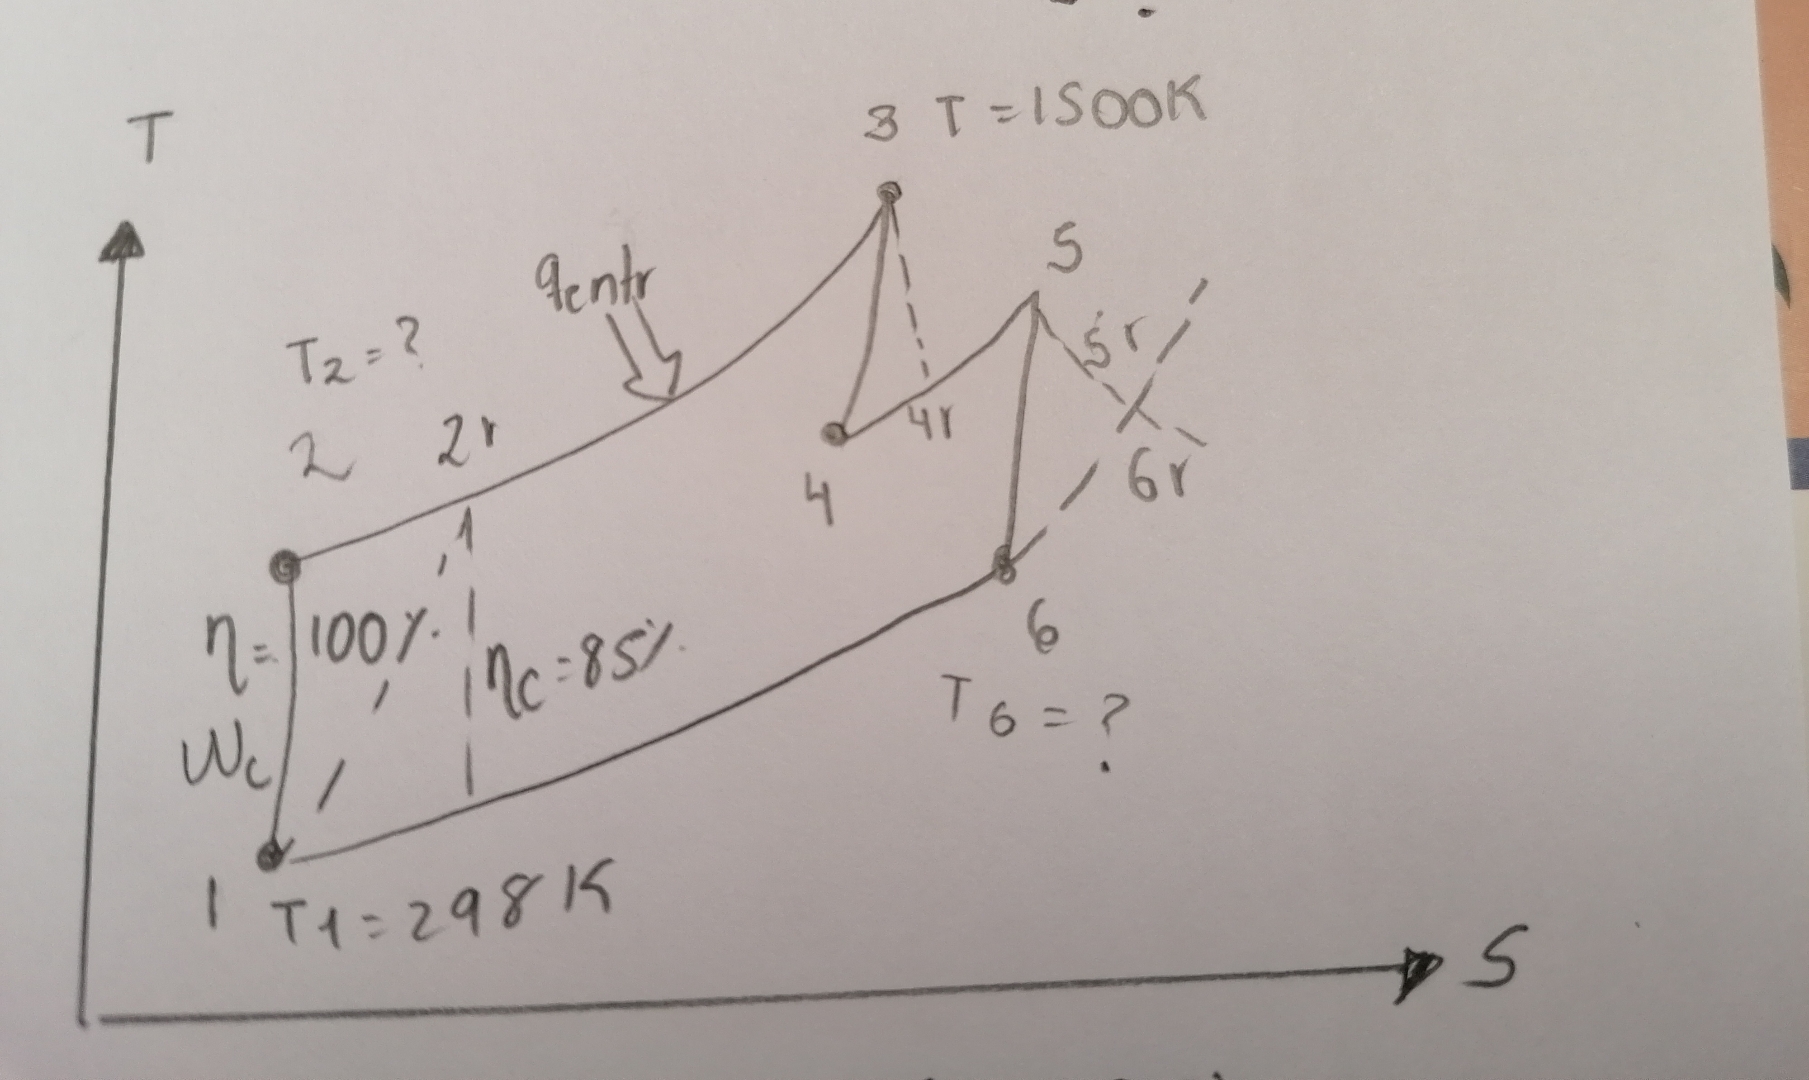 T
3 T = 1500K
5
qentr
5r
T2 = ?
2 2r
4r
4
6r
η = 100%
ηc = 85%
6
Wc
T6 = ?
1 T1 = 298K
S